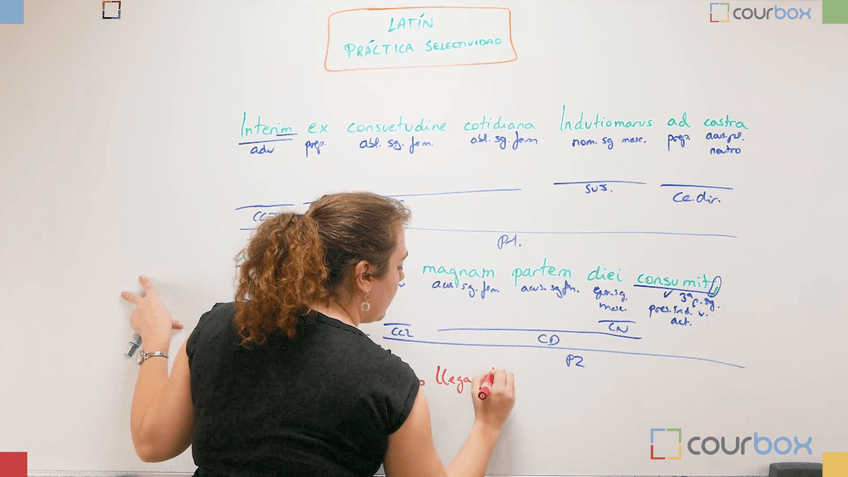 courbox
LATÍN
PRÁCTICA SELECTIVIDAD
Interim ex consuetudine cotidiana Indutiomarus ad castra
adv prep. abl. sg. fem. abl. sg. fem nom. sg masc. prep. acus. pl.
neutro
SUJ. CC. dir.
P1.
magnam partem diei consumit
acus. sg. fem acus. sg fm. gen. sg. v 3ª p. sg.
masc. pres. ind. v.
act.
CCL CD CN
P2
llega
courbox